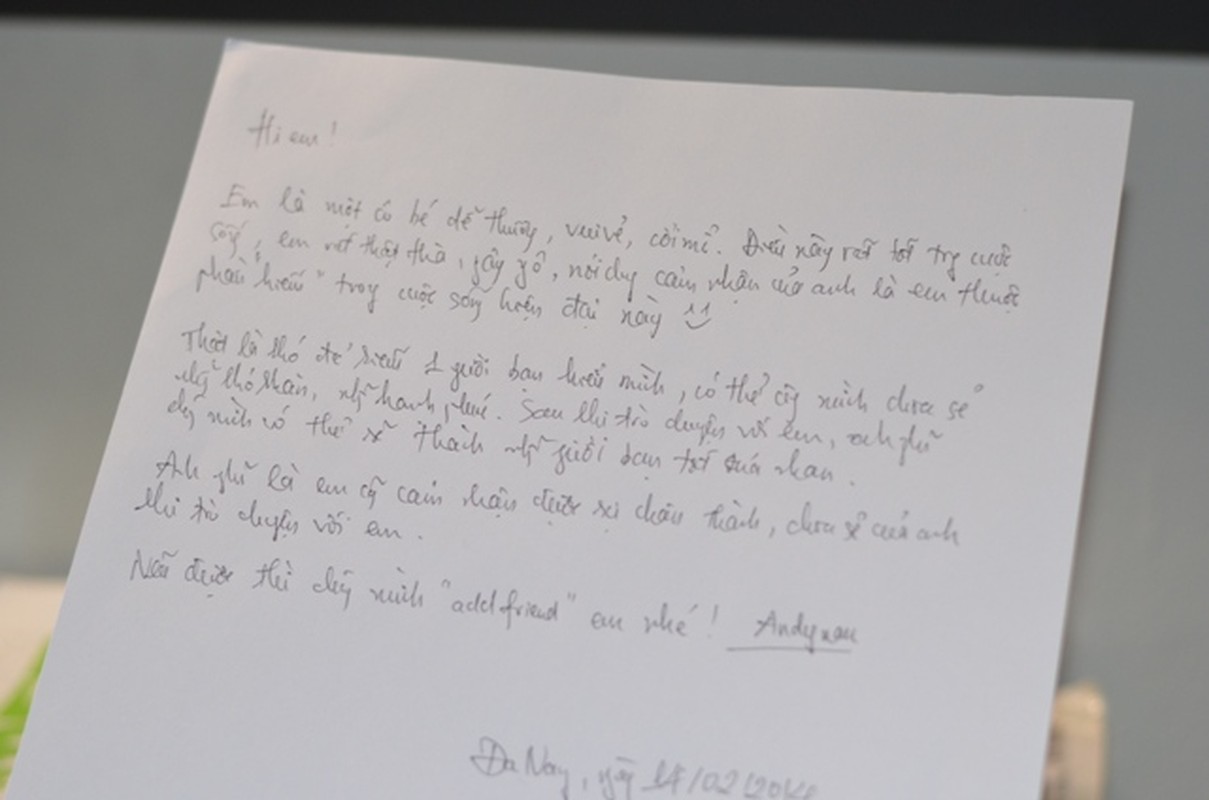 Hi em!
Em là một cô bé dễ thương, vui vẻ, cởi mở. Điều này rất tốt trg cuộc
sống, em rất thật thà, ngây ngô, nói chg cảm nhận của anh là em thuộc
hiếm" trong cuộc sống hiện đại này
Thật là khó để kiếm 1 người bạn hiểu mình, có thể cùng mình chia sẻ
những khó khăn, những hạnh phúc. Sau khi trò chuyện với em, anh nghĩ
chúng mình có thể sẽ thành những người bạn tốt của nhau.
Anh nghĩ là em cũng cảm nhận được sự chân thành, chia sẻ của anh
khi trò chuyện với em.
Nếu được thì chúng mình "add friend" em nhé!
Đà Nẵng, ngày 14/02/2014